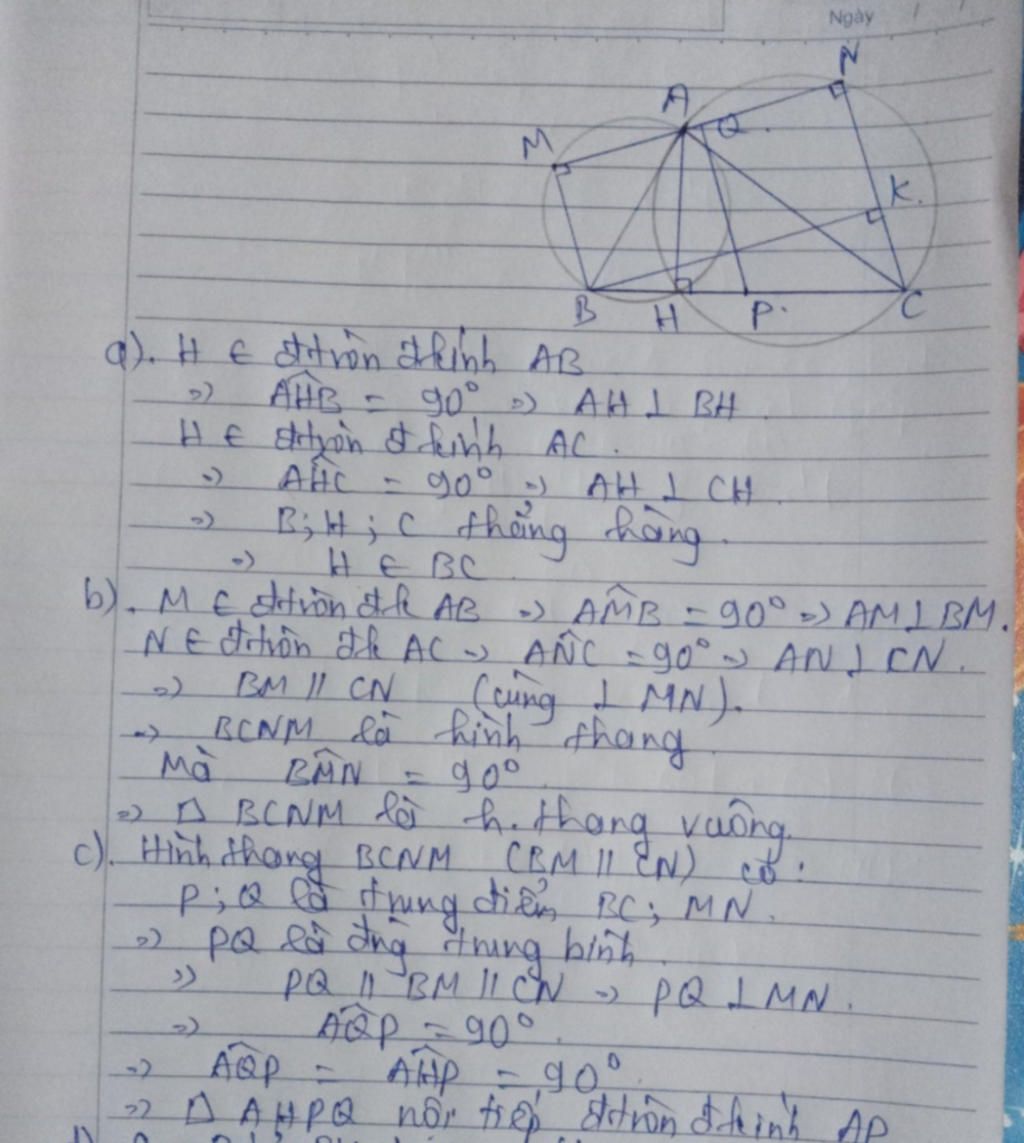 Ngày / /
N
A
Q
M
K.
B H P. C
a). H ∈ đtròn đkính AB
=> AĤB = 90° => AH ⊥ BH
H ∈ đtròn đkính AC.
=> AĤC = 90° => AH ⊥ CH
=> B; H; C thẳng hàng.
=> H ∈ BC
b). M ∈ đtròn đk AB => AM̂B = 90° => AM ⊥ BM.
N ∈ đtròn đk AC => AN̂C = 90° => AN ⊥ CN.
=> BM // CN (cùng ⊥ MN).
=> BCNM là hình thang
Mà BM̂N = 90°
=> BCNM là h. thang vuông.
c). Hình thang BCNM (BM // CN) có:
P; Q là trung điểm BC; MN.
=> PQ là đng trung bình.
=> PQ // BM // CN => PQ ⊥ MN.
=> AQ̂P = 90°
=> AQ̂P = AĤP = 90°.
=> AHPQ nội tiếp đtròn đkính AP